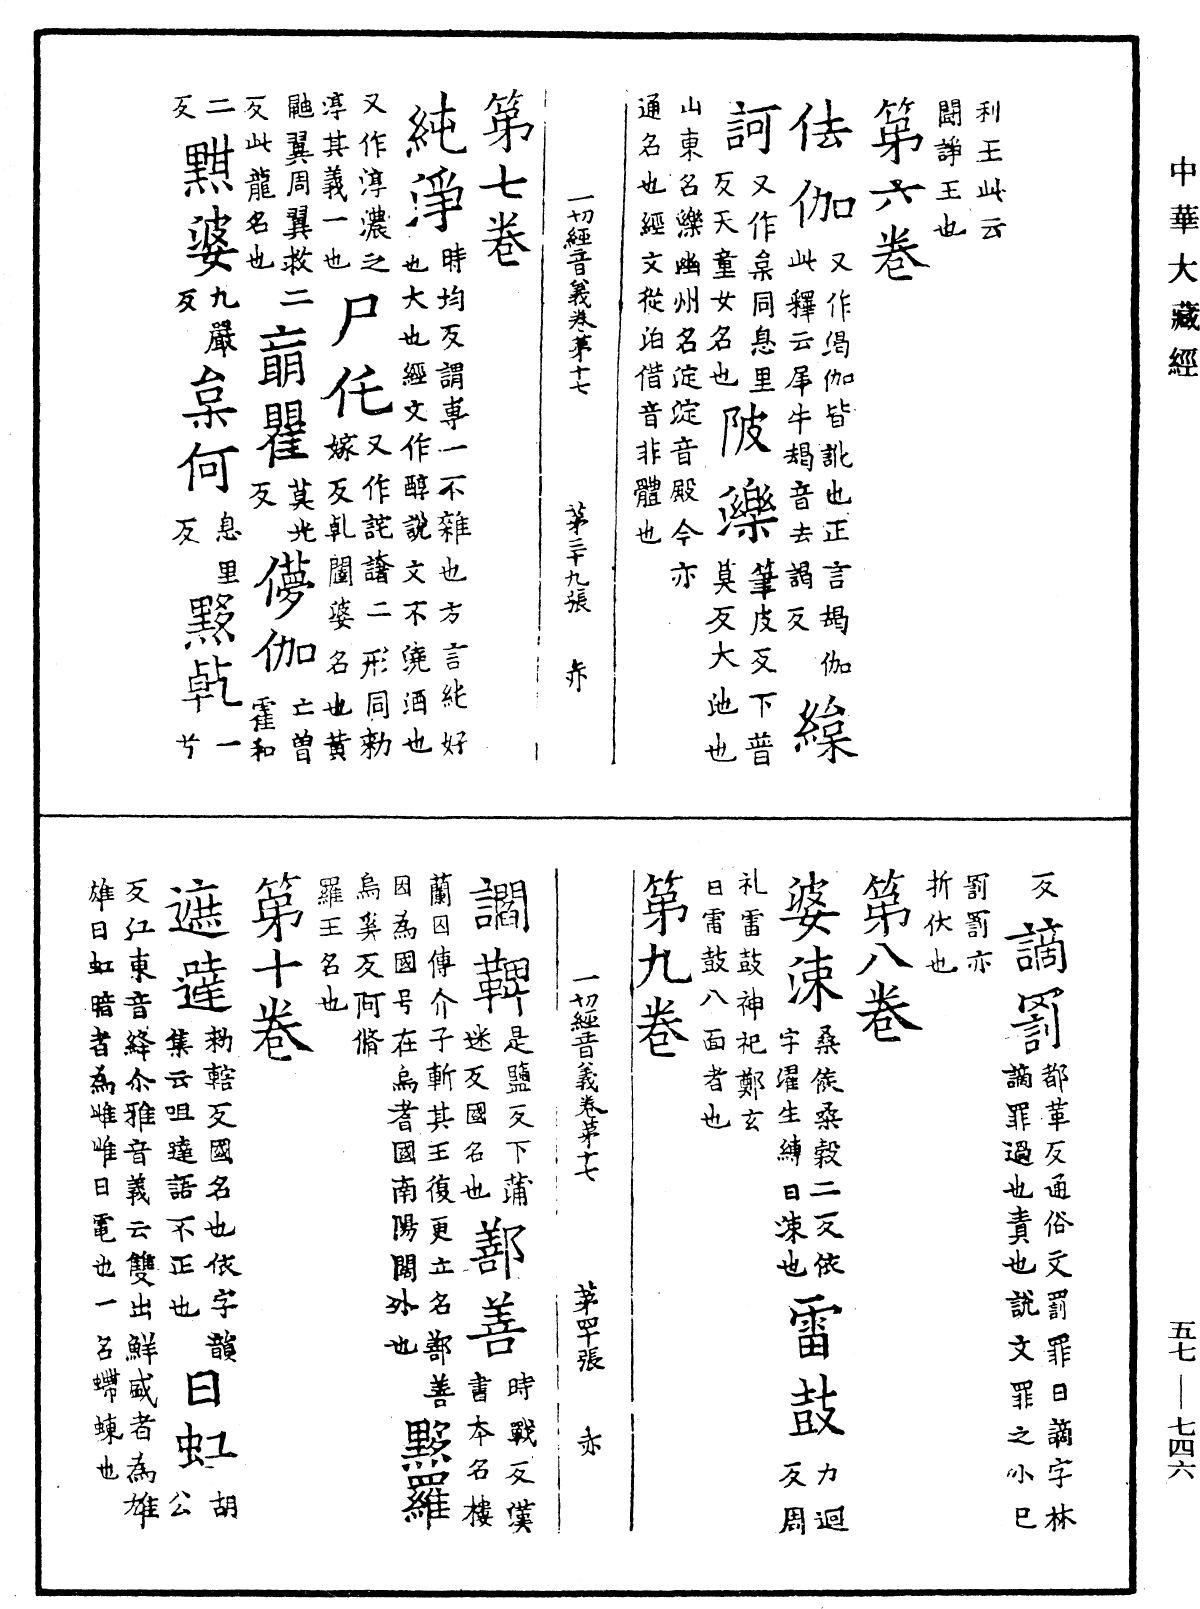 中華大藏經
利王此云
鬪諍王也
第六卷
佉伽又作偈伽皆訛也正言朅伽
此釋云犀牛朅音去謁反繰
訶又作枲同息里反天童女名也陂濼筆皮反下普莫反大池也
山東名濼幽州名淀淀音殿今亦
通名也經文從泊借音非體也
一切經音義卷第十七 第三十九張 亦
第七卷
純淨時均反謂專一不雜也方言純好也大也經文作醇說文不澆酒也
又作淳濃之淳其義一也尸仛又作詫諸二形同勑嫁反乹闥婆名也黃
鼬翼周翼救二反此龍名也二萠瞿莫光反儚伽亡曽霍和
二反黰婆九嚴反枲何息里反黟乹一兮
反謫罰都革反通俗文罰罪曰謫字林謫罪過也責也說文罪之小巳
罰罰亦
折伏也
第八卷
婆涑桑侯桑穀二反依字濯生縳曰涑也雷鼓力迴反周
礼雷鼓神祀鄭玄
曰雷鼓八面者也
第九卷
讇鞞是鹽反下蒲迷反國名也鄯善時戰反漢書本名樓
蘭囚傳介子斬其王復更立名鄯善
因為國号在烏耆國南陽關外也黟羅
烏奚反阿脩
羅王名也
一切經音義卷第十七 第四十張 亦
第十卷
遮達勑轄反國名也依字韻集云咀達語不正也日虹胡公
反江東音絳尒雅音義云雙出鮮盛者為雄
雄曰虹暗者為雌雌曰電也一名螮蝀也
五七—七四六